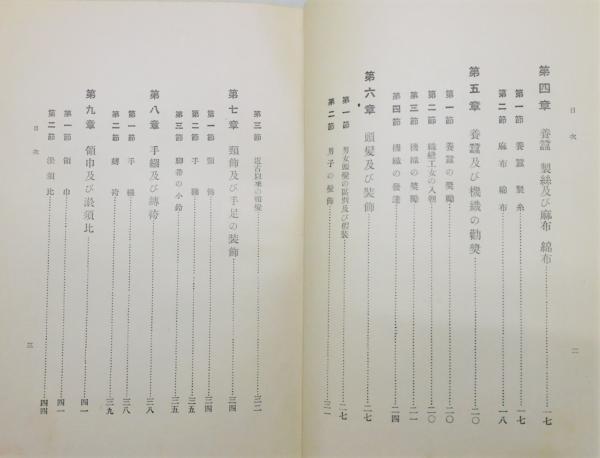 目次
第四章 養蠶 製絲及び麻布 綿布……一七
第一節 養蠶 製糸……一七
第二節 麻布 綿布……一八
第五章 養蠶及び機織の勸奬……二〇
第一節 養蠶の奬勵……二〇
第二節 織縫工女の入朝……二〇
第三節 機織の奬勵……二一
第四節 機織の發達……二四
第六章 頭髮及び裝飾……二七
第一節 男女頭髮の區別及び假裝……二七
第二節 男子の髮飾……三一
二
第三節 近古以來の頭髮……三二
第七章 頸飾及び手足の裝飾……三四
第一節 頸飾……三四
第二節 手纏……三五
第三節 脚帶の小鈴……三五
第八章 手繦及び褠袴……三八
第一節 手繦……三八
第二節 褠袴……三九
第九章 領巾及び淤須比……四一
第一節 領巾……四一
第二節 淤須比……四四
目次
三